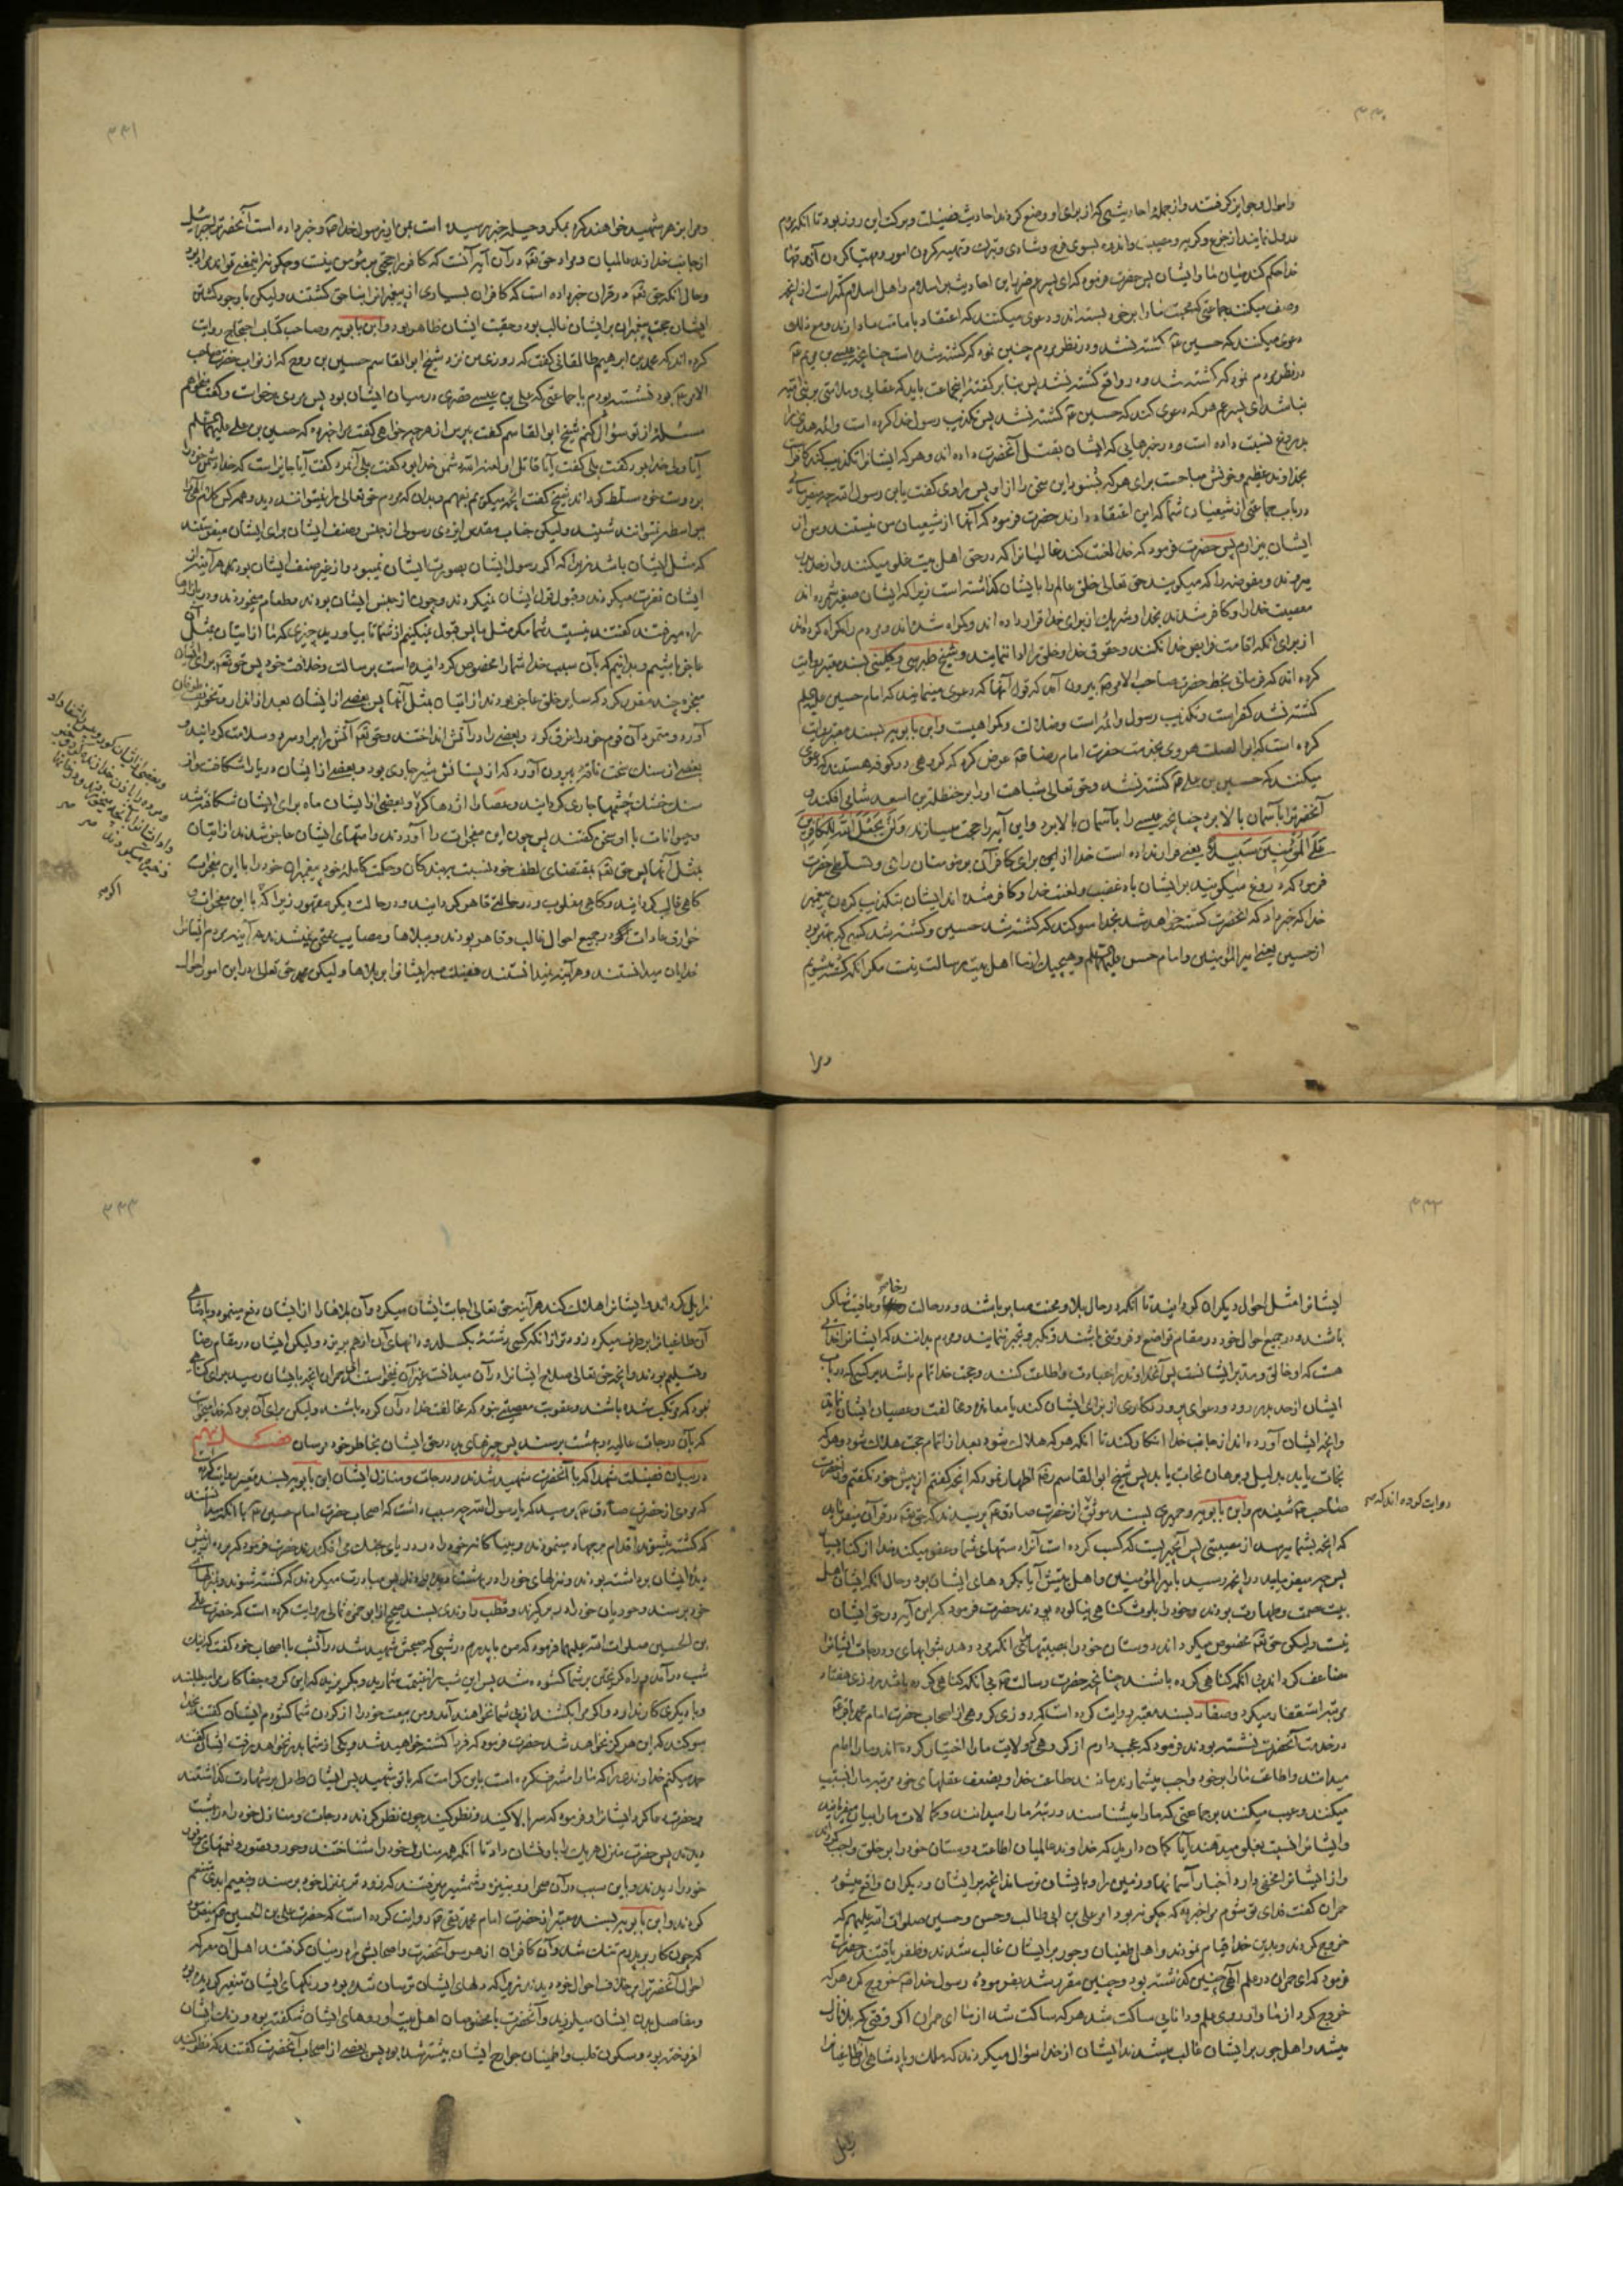 ۳۳۰
واموال وجوایز گرفتند و از جمله احادیثی که از برای او وضع کردند احادیث فضیلت و برکت این روز بود تا آنکه مردم
عدول نمایند از جزع و گریه و مصیبت و اندوه بسوی فرح و شادی و تبرک و تهیه کردن امور و مهیا کردن آذوقها
خدا حکم کند میان ما و ایشان پس حضرت فرمود که ای پسر عم ضرر این احادیث بر اسلام و اهل اسلام کمتر است از آنچه
وضع میکنند جماعتی که محبت ما را بر خود بسته اند و دعوی میکنند که اعتقاد بامامت ما دارند و مع ذلک
دعوی میکنند که حسین ع کشته نشد و در نظر مردم چنین نمود که کشته شده است چنانچه عیسی بن مریم ع
در نظر مردم نمود که کشته شد و در واقع کشته نشد پس بنابر گفته اینجماعت باید که عقابی و ملامتی بر بنی امیه
نباشد ای پسر عم هر که دعوی کند که حسین ع کشته نشد پس تکذیب رسول خدا کرده است و ائمه هدی را
بدروغ نسبت داده است در خبرهایی که ایشان بقتل آنحضرت داده اند و هر که ایشانرا تکذیب کند کافر است
بخداوند عظیم و خونش مباحست برای هر که بشنود این سخن را از او پس راوی گفت یابن رسول الله چه میفرمائی
در باب جماعتی از شیعیان شما که این اعتقاد دارند حضرت فرمود که آنها از شیعیان من نیستند و من از
ایشان بیزارم پس حضرت فرمود که خدا لعنت کند غالیانرا که در حق اهل بیت غلو میکنند و از حد بدر
میروند و مفوضه را که میگویند حق تعالی خلق عالم را بایشان گذاشته است زیرا که ایشان صغیر شمرده اند
معصیت خدا را و کافر شدند بخدا و شریک از برای خدا قرار داده اند و گمراه شده اند و مردم را گمراه کرده اند
از برای آنکه اقامت فرایض خدا نکنند و حقوق خدا و خلق را ادا ننمایند و شیخ طبرسی و کلینی بسند معتبر روایت
کرده اند که فرمانی بخط حضرت صاحب الامر ع بیرون آمد که قول آنها که دعوی مینمایند که امام حسین علیه السلم
کشته نشد کفر است و تکذیب رسول و ائمه است و ضلالت و گمراهیست و ابن بابویه بسند معتبر روایت
کرده است که ابو الصلت هروی بخدمت حضرت امام رضا ع عرض کرد که گروهی در کوفه هستند که دعوی
میکنند که حسین بن علی ع کشته نشد و حق تعالی شباهت او را بر حنظلة بن اسعد شامی افکند و
آنحضرترا بآسمان بالا برد چنانچه عیسی را بآسمان بالا برد و این آیه را حجت میسازند وَلَنْ یَجْعَلَ اللّٰهُ لِلْکافِرینَ
عَلَی الْمُؤْمِنینَ سَبیلًا یعنی قرار نداده است خدا از برای کافران بر مؤمنان راهی و تسلطی حضرت
فرمود که دروغ میگویند بر ایشان باد غضب و لعنت خدا و کافر شده اند ایشان بتکذیب کردن پیغمبر
خدا که خبر داد که آنحضرت کشته خواهد شد بخدا سوگند که کشته شد حسین و کشته شد کسی که بهتر بود
از حسین یعنی امیر المؤمنین و امام حسن علیهما السلم و هیچیک از ما اهل بیت رسالت نیست مگر آنکه کشته میشویم
ومرا
۳۳۱
ومرا بزهر شهید خواهند کرد بمکر و حیله خبر رسیده است بمن از رسول خدا ص و خبر داده است آنحضرترا جبرئیل
از جانب خداوند عالمیان و مراد حق تع در آن آیه آنست که کافر را حجتی بر مؤمن نیست و چگونه اینمعنی تواند مراد بود
و حال آنکه حق تع در قران خبر داده است که کافران بسیاری از پیغمبرانرا بناحق کشتند ولیکن با وجود کشتن
ایشان حجت پیغمبران بر ایشان غالب بود و حقیت ایشان ظاهر بود و ابن بابویه و صاحب کتاب احتجاج روایت
کرده اند که محمد بن ابرهیم طالقانی گفت که روزی من نزد شیخ ابو القاسم حسین بن روح که از نواب حضرت صاحب
الامر ع بود نشسته بودم با جماعتی که علی بن عیسی قصری در میان ایشان بود پس مردی برخواست و گفت میخواهم
مسئله از تو سؤال کنم شیخ ابو القاسم گفت بپرس از هر چه خواهی گفت مرا خبر ده که حسین بن علی علیهما السلم
آیا ولی خدا بود گفت بلی گفت آیا قاتل او لعنه الله دشمن خدا بود گفت بلی آنمرد گفت آیا جایز است که خدا دشمن خود را
بر دوست خود مسلط گرداند شیخ گفت آنچه میگویم بفهم و بدان که مردم حق تعالی را نمیتوانند دید و هر کس کلام الهی را
بیواسطه نمیتوانند شنید ولیکن جناب مقدس ایزدی رسولی از جنس و صنف ایشان برای ایشان میفرستد
که مثل ایشان باشد زیرا که اگر رسول ایشان بصورت ایشان نمیبود و از غیر صنف ایشان بود هر آینه از
ایشان نفرت میکردند و قبول قول ایشان نمیکردند و چون از جنس ایشان بودند و طعام میخوردند و در بازارها
راه میرفتند گفتند نیستید شما مگر مثل ما پس قبول نمیکنیم از شما تا بیاورید چیزی که ما از اتیان بمثل آن
عاجز باشیم و بدانیم که بآن سبب خدا شما را مخصوص گردانیده است برسالت و خلافت خود پس حق تع برای ایشان
معجزه چند مقرر کرد که سایر خلق عاجز بودند از اتیان بمثل آنها پس بعضی از ایشان بعد از انذار و تخویف طوفان
آورد و متمردان قوم خود را غرق کرد و بعضی را در آتش انداختند و حق تع آتش را بر او سرد و سلامت گردانید و
بعضی از سنک سخت ناقه بیرون آورد که از پستانش شیر جاری بود و بعضی از ایشان دریا را شکافت و از
سنک خشک چشمها جاری گردانید و عصا را اژدها کرد و بعضی از ایشان ماه برای ایشان شکافته شد
و حیوانات با او سخن گفتند پس چون این معجزات را آوردند و امتهای ایشان عاجز شدند از اتیان
بمثل آنها پس حق تع بمقتضای لطف خود نسبت ببندگان و حکمت کامله خود پیغمبران خود را با این معجزات
گاهی غالب گردانید و گاهی مغلوب و در حالتی قاهر گردانید و در حالت دیگر مقهور زیرا که با این معجزات و
خوارق عادات اگر در جمیع احوال غالب و قاهر بودند و ببلاها و مصایب ممتحن نمیشدند هر آینه مردم ایشانرا
خدایان میدانستند و هر آینه نمیدانستند فضیلت صبر ایشانرا بر بلاها ولیکن حق تعالی در این امور احوال
و بعضی از ایشان کور روشن را شفا داد
و مرده را باذن خدا زنده کرد و خبر
داد ایشانرا بآنچه میخورند و در خانها
ذخیره میکردند صح
اکرمه
۳۳۲
ایشانرا مثل احوال دیگران گردانید تا آنکه در حال بلا و محنت صابر باشند و در حالت رخا و عافیت شاکر
باشند و در جمیع احوال خود در مقام تواضع و فروتنی باشند و تکبر و تجبر ننمایند و مردم بدانند که ایشانرا خدائی
هست که او خالق و مدبر ایشانست پس آنخداوند را عبادت و اطاعت کنند و حجت خدا تمام باشد بر کسی که در باب
ایشان از حد بدر رود و دعوای پروردگاری از برای ایشان کند یا معانده و مخالفت و عصیان ایشان نماید
و آنچه ایشان آورده اند از جانب خدا انکار کند تا آنکه هر که هلاک شود بعد از اتمام حجت هلاک شود و هر که
نجات یابد بدلیل و برهان نجات یابد پس شیخ ابو القاسم ره اظهار نمود که آنچه گفتم از پیش خود نگفتم و از حضرت
صاحب ع شنیدم و ابن بابویه و حمیری بسند موثق از حضرت صادق ع پرسیدند که حق تع در قرآن میفرماید
روایت کرده اند که صح
که آنچه بشما میرسد از مصیبتی پس آنچیزیست که کسب کرده است آنرا دستهای شما و عفو میکند خدا از گناه بسیار
پس چه میفرمایید در آنچه رسید بامیر المؤمنین و اهل بیتش آیا بکرده های ایشان بود و حال آنکه ایشان اهل
بیت عصمت و طهارت بودند و خود را بلوث گناهی نیالوده بودند حضرت فرمود که این آیه در حق ایشان
نیست ولیکن حق تع مخصوص میگرداند دوستان خود را بمصیبتها برای آنکه مزد دهد ثوابهای و درجات ایشانرا
مضاعف گرداند بی آنکه گناهی کرده باشند چنانچه حضرت رسالت ص بی آنکه گناهی کرده باشد هر روزی هفتاد
مرتبه استغفار میکرد و صفار بسند معتبر روایت کرده است که روزی گروهی از اصحاب حضرت امام محمد باقر ع
در خدمت آنحضرت نشسته بودند فرمود که عجب دارم از گروهی که ولایت ما را اختیار کرده اند و ما را امام
میدانند و اطاعت ما را بر خود واجب میشمارند مانند طاعت خدا و بضعف عقلهای خود مرتبه ما را پست
میکنند و عیب میکنند بر جماعتی که ما را میشناسند و رتبه ما را میدانند و کمالات ما را بیان میفرمایند
و ایشانرا نسبت بغلو میدهند آیا گمان دارید که خداوند عالمیان اطاعت دوستان خود را بر خلق واجب گرداند
و از ایشان مخفی دارد اخبار آسمانها و زمین را و بایشان نرساند آنچه بر ایشان و دیگران واقع میشود
حمران گفت فدای تو شوم مرا خبر ده که چگونه بود امر علی بن ابی طالب و حسن و حسین صلوات الله علیهم که
خروج کردند و بدین خدا قیام نمودند و اهل طغیان و جور بر ایشان غالب شدند و ظفر یافتند حضرت
فرمود که ای حمران در علم الهی چنین گذشته بود و چنین مقرر شد بفرموده رسول خدا ص خروج کرد هر که
خروج کرد از ما و از روی علم و دانایی ساکت شد هر که ساکت شد از ما ای حمران اگر وقتی که بلا نازل
میشد و اهل جور بر ایشان غالب میشدند ایشان از خدا سؤال میکردند که ملک و پادشاهی آن طاغیانرا
زایل
۳۳۳
زایل گرداند و ایشانرا هلاک کند هر آینه حق تعالی اجابت ایشان میکرد و آن بلاها را از ایشان دفع مینمود و پادشاهی
آن طاغیانرا برطرف میکرد زودتر از آنکه کسی رشتهٔ بگسلد و دانهای آن از هم بریزد ولیکن ایشان در مقام رضا
و تسلیم بودند و آنچه حق تعالی صلاح ایشانرا در آن میدانست غیر آن نمیخواستند ای حمران آنچه بایشان رسید برای گناهی
نبود که مرتکب شده باشند و عقوبت معصیتی نبود که مخالفت خدا در آن کرده باشند ولیکن برای آن بود که خدا میخواست
که بآن درجات عالیه در بهشت برسند پس چیزهای بد در حق ایشان بخاطر خود مرسان فصل نهم
در بیان فضیلت شهدا که با آنحضرت شهید شدند و درجات و منازل ایشان ابن بابویه بسند معتبر روایت کرده است
که مردی از حضرت صادق ع پرسید که یابن رسول الله چه سبب داشت که اصحاب حضرت امام حسین ع با آنکه میدانستند
که کشته میشوند اقدام بر جهاد مینمودند و بیباکانه خود را در دریای جنگ می افکندند حضرت فرمود که پرده از پیش
دیدهٔ ایشان برداشته بودند و منزلهای خود را در بهشت دیده بودند پس مبادرت میکردند که کشته شوند و بمنزلهای
خود برسند و حوریان خود را در بر گیرند و قطب راوندی بسند صحیح از ابو حمزه ثمالی روایت کرده است که حضرت علی
بن الحسین صلوات الله علیهما فرمود که من با پدرم در شبی که صبحش شهید شد در آنشب با اصحاب خود گفت که اینک
شب درآمد و راه گریختن بر شما گشوده شد پس این شب را غنیمت شمارید و بگریزید که این گروه جفاکار مرا میطلبند
و با دیگری کار ندارد و اگر مرا بکشند از پی شما نخواهند آمد و من بیعت خود را از گردن شما گشودم ایشان گفتند بخدا
سوگند که این هرگز نخواهد شد حضرت فرمود که فردا کشته خواهید شد و یکی از شما بدر نخواهد رفت ایشان گفتند
حمد میکنیم خداوندی را که ما را مشرف کرده است باین کرامت که با تو شهید پس ایشان دل بر شهادت گذاشتند
و حضرت دعا کرد ایشانرا و فرمود که سر بالا کنید و نظر کنید چون نظر کردند درجات و منازل خود را در بهشت
دیدند پس حضرت منزل هر یک را باو نشان داد تا آنکه همه منازل خود را شناختند و حور و قصور و نعمتهای موفور
خود را دیدند و باین سبب در آن صحرا رو بنیزه و شمشیر میرفتند که زودتر بمنزل خود برسند و بنعیم ابدی متنعم
گردند و ابن بابویه بسند معتبر از حضرت امام محمد تقی ع روایت کرده است که حضرت علی بن الحسین ع میفرمود
که چون کار بر پدرم تنک شد و آن کافران از هر سو آنحضرت و اصحابش را در میان گرفتند اهل آن معرکه
احوال آنحضرترا بر خلاف احوال خود دیدند زیرا که دلهای ایشان ترسان شده بود و رنگهای ایشان متغیر گردیده بود
و مفاصل بدن ایشان میلرزید و آنحضرت با مخصوصان اهل بیت او روهای ایشان شکفته بود و رنک ایشان
افروخته بود و سکون قلب و اطمینان جوارح ایشان بیشتر شده بود پس بعضی از اصحاب آنحضرت گفتند که نظر کنید